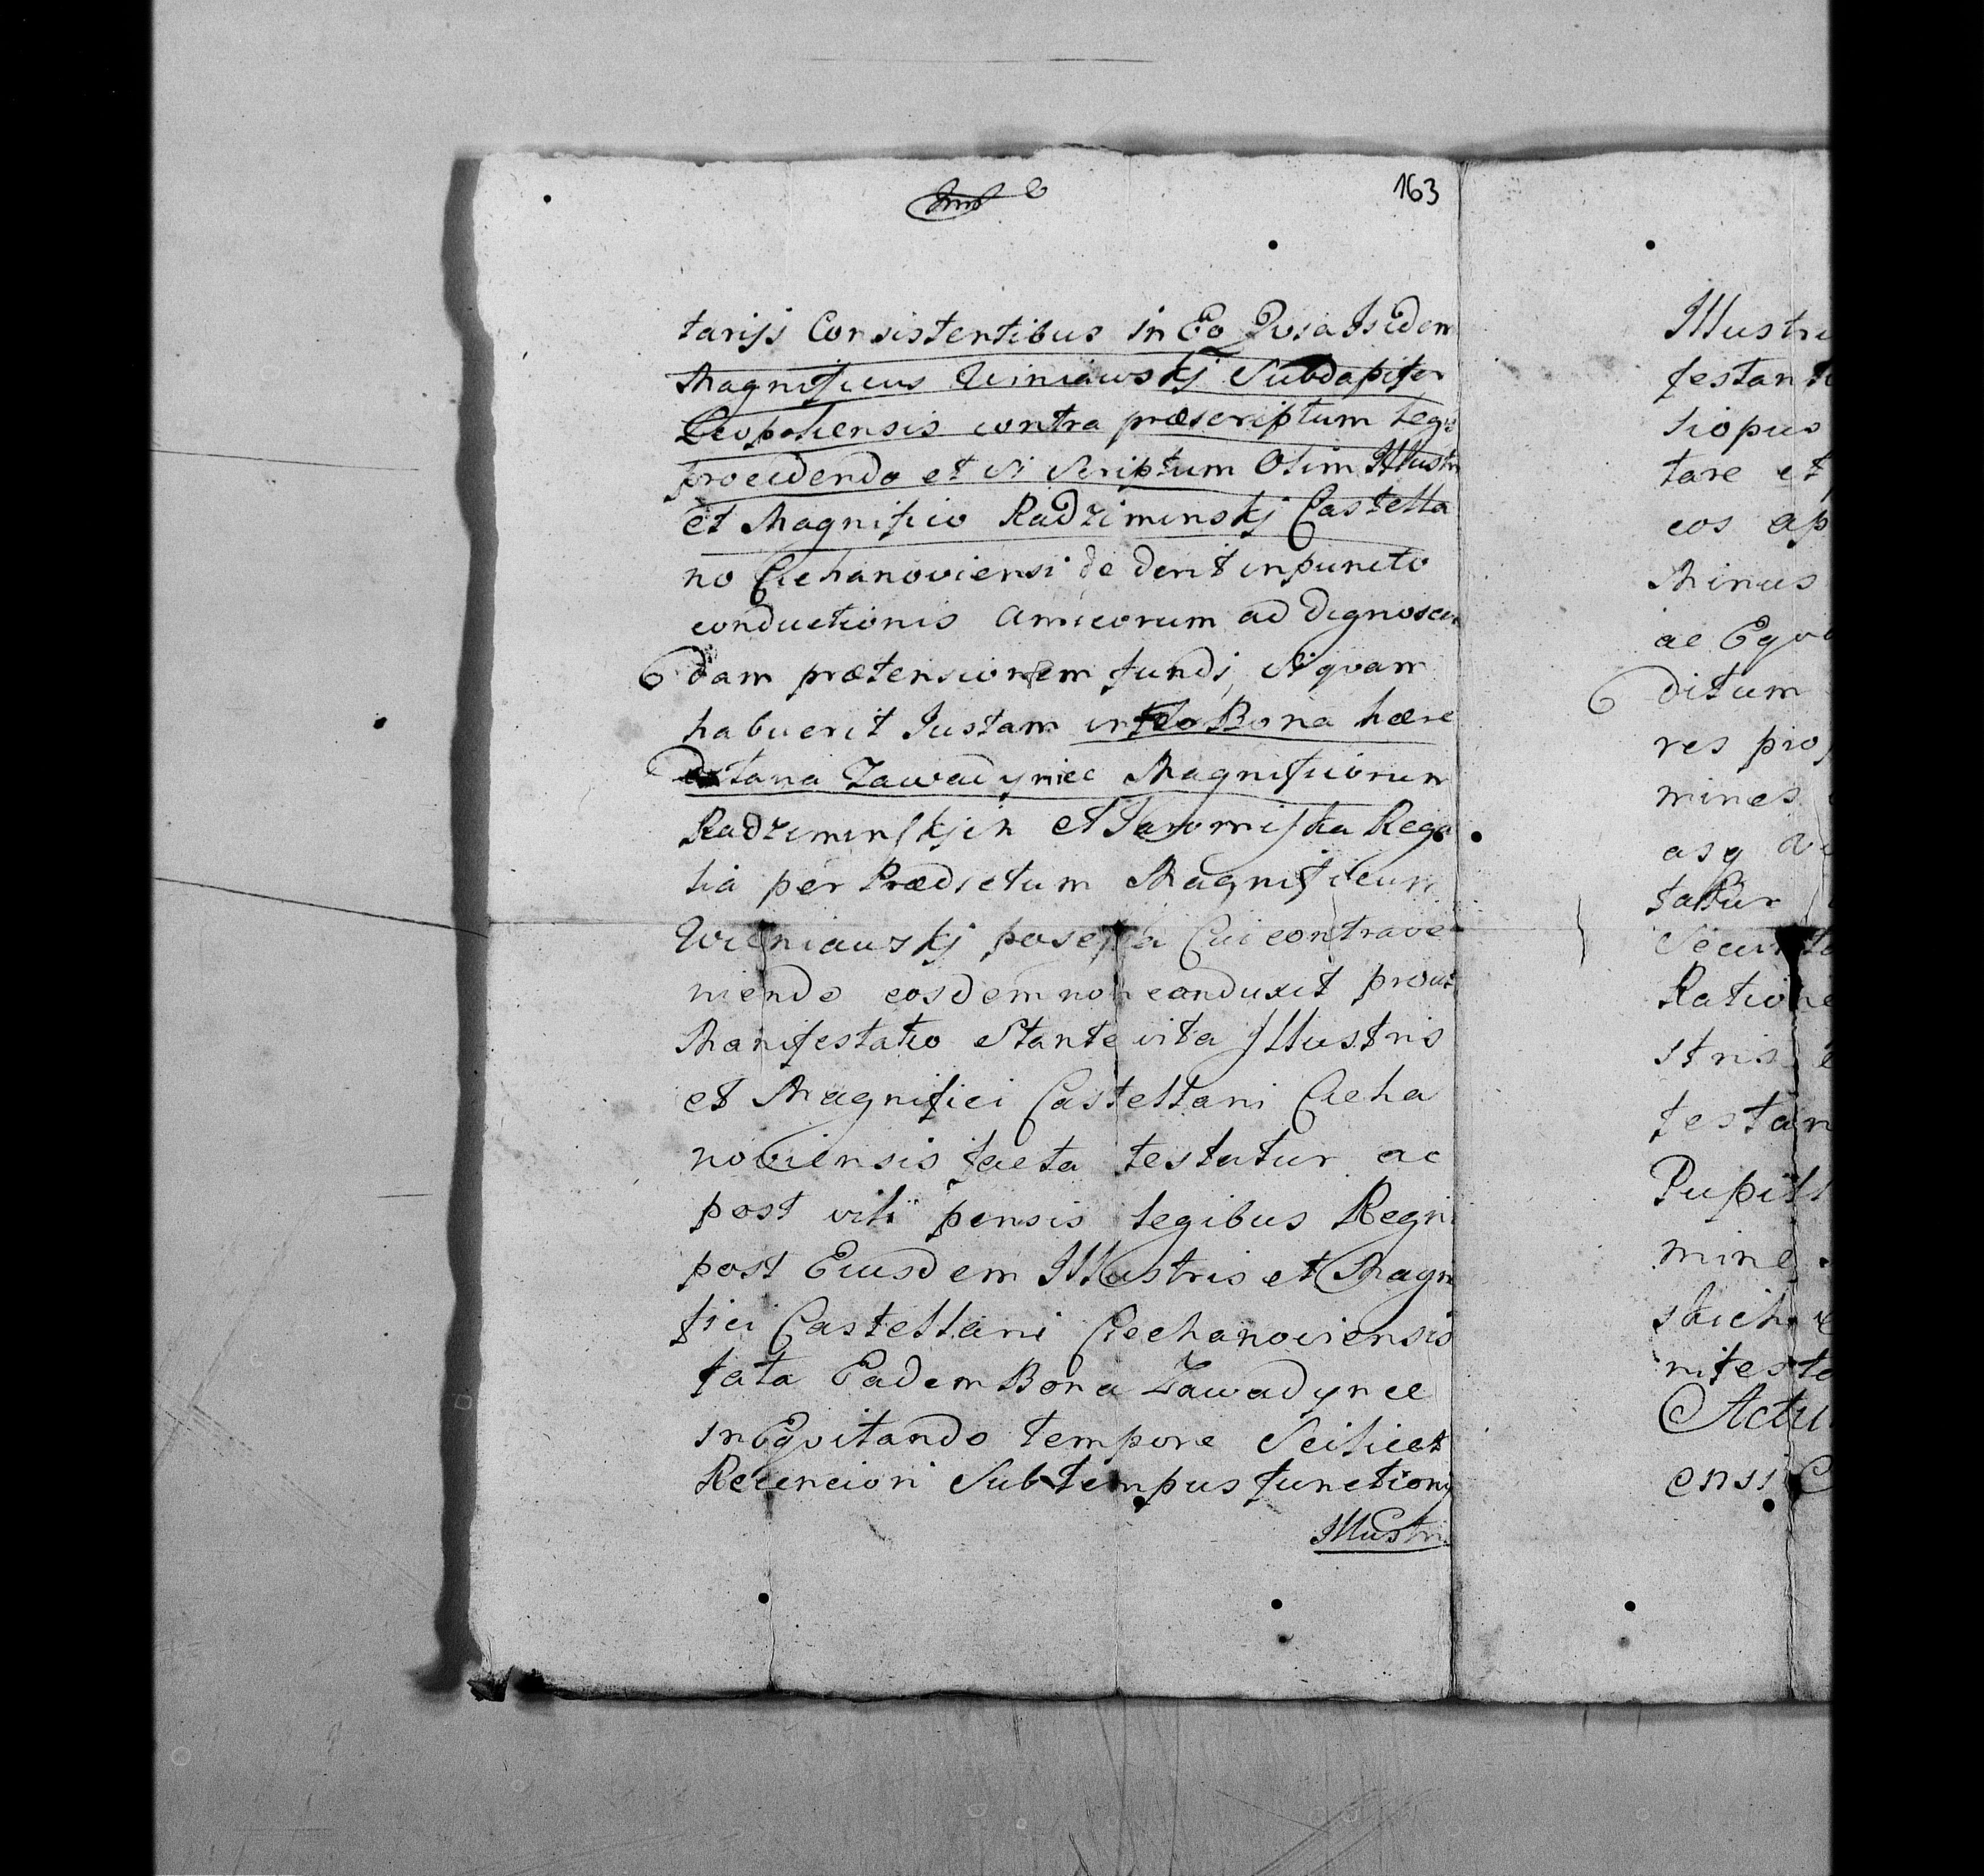 163
tarijs Consistentibus in Eo Quia Isidem
Magnificus Winiawskj Subdapifer
Leopoliensis contra præscriptum legis
procedendo et si Scriptum Olim Illustri
et Magnifico Radziminskj Castella
no Ciechanoviensi dederit in puncto
conductionis Amicorum ad dignoscen
dam prætensionem fundi, Si quam
habuerit Justam Bona hære
ditaria Zawadyniec Magnificorum
Radziminskjch et Rega
lia per Prædictum Magnificum
Wieniawskj posessa Cui contrave
niendo eosdem non conduxit prout
Manifestatio Stante vita Illustris
et Magnifici Castellani Cieha
noviensis facta testatur ac
post vili pensis legibus Regni
post Eiusdem Illustris et Magni
fici Castellani Ciechanoviensis
fata Eadem Bona Zawadynce
inEqvitando tempore Scilicet
Recenciori Sub tempus functionis
Illustri
Illustri
festan
liopus
tare et
eos ap
Minus
ac Eqvi
ditum
res pro
mines
asq
tatur
Securita
Ratione
stris
festan
Pupill
mine
skich
nifesta
Actu
ensi C